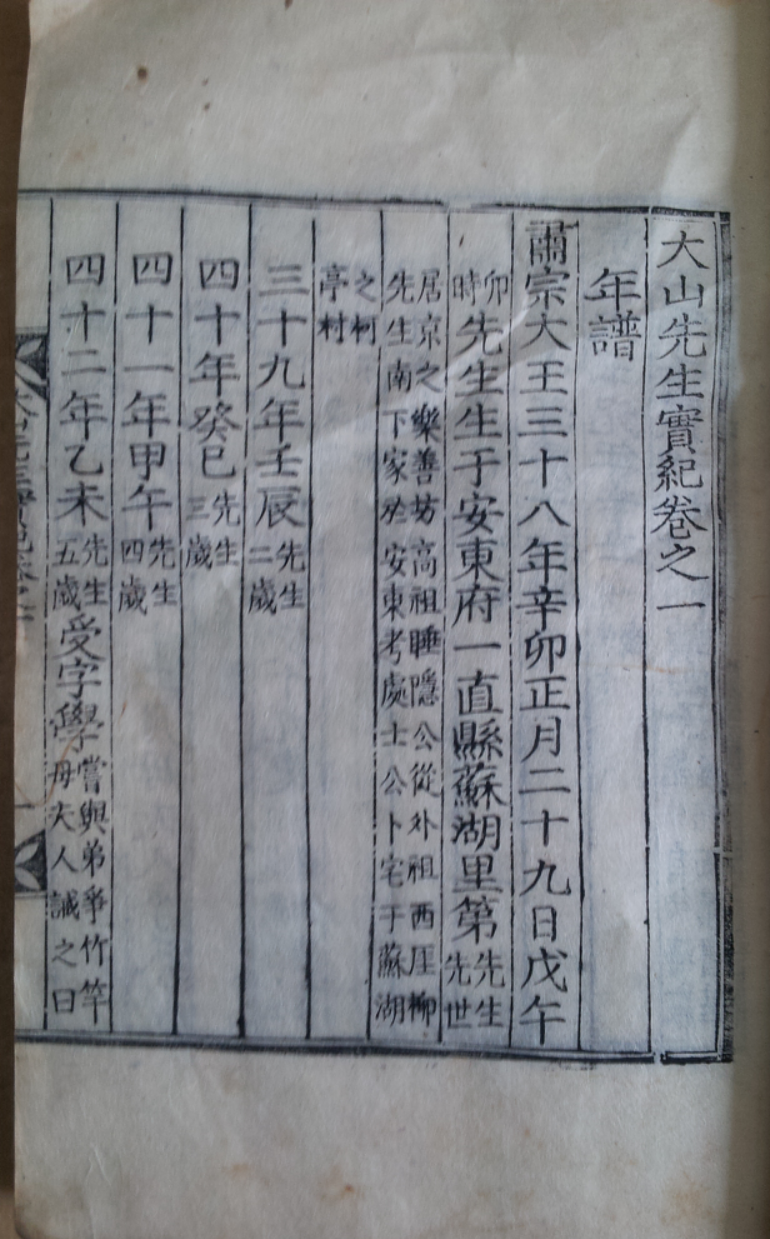 大山先生實紀卷之一
年譜
肅宗大王三十八年辛卯正月二十九日戊午
卯時先生生于安東府一直縣蘇湖里第先生先世
居京之樂善坊高祖睡隱公從外祖西厓柳
先生南下家於安東考處士公卜宅于蘇湖
之柯
亭村
三十九年壬辰先生二歲
四十年癸巳先生三歲
四十一年甲午先生四歲
四十二年乙未先生五歲受字學嘗與弟爭竹竿母夫人誡之曰